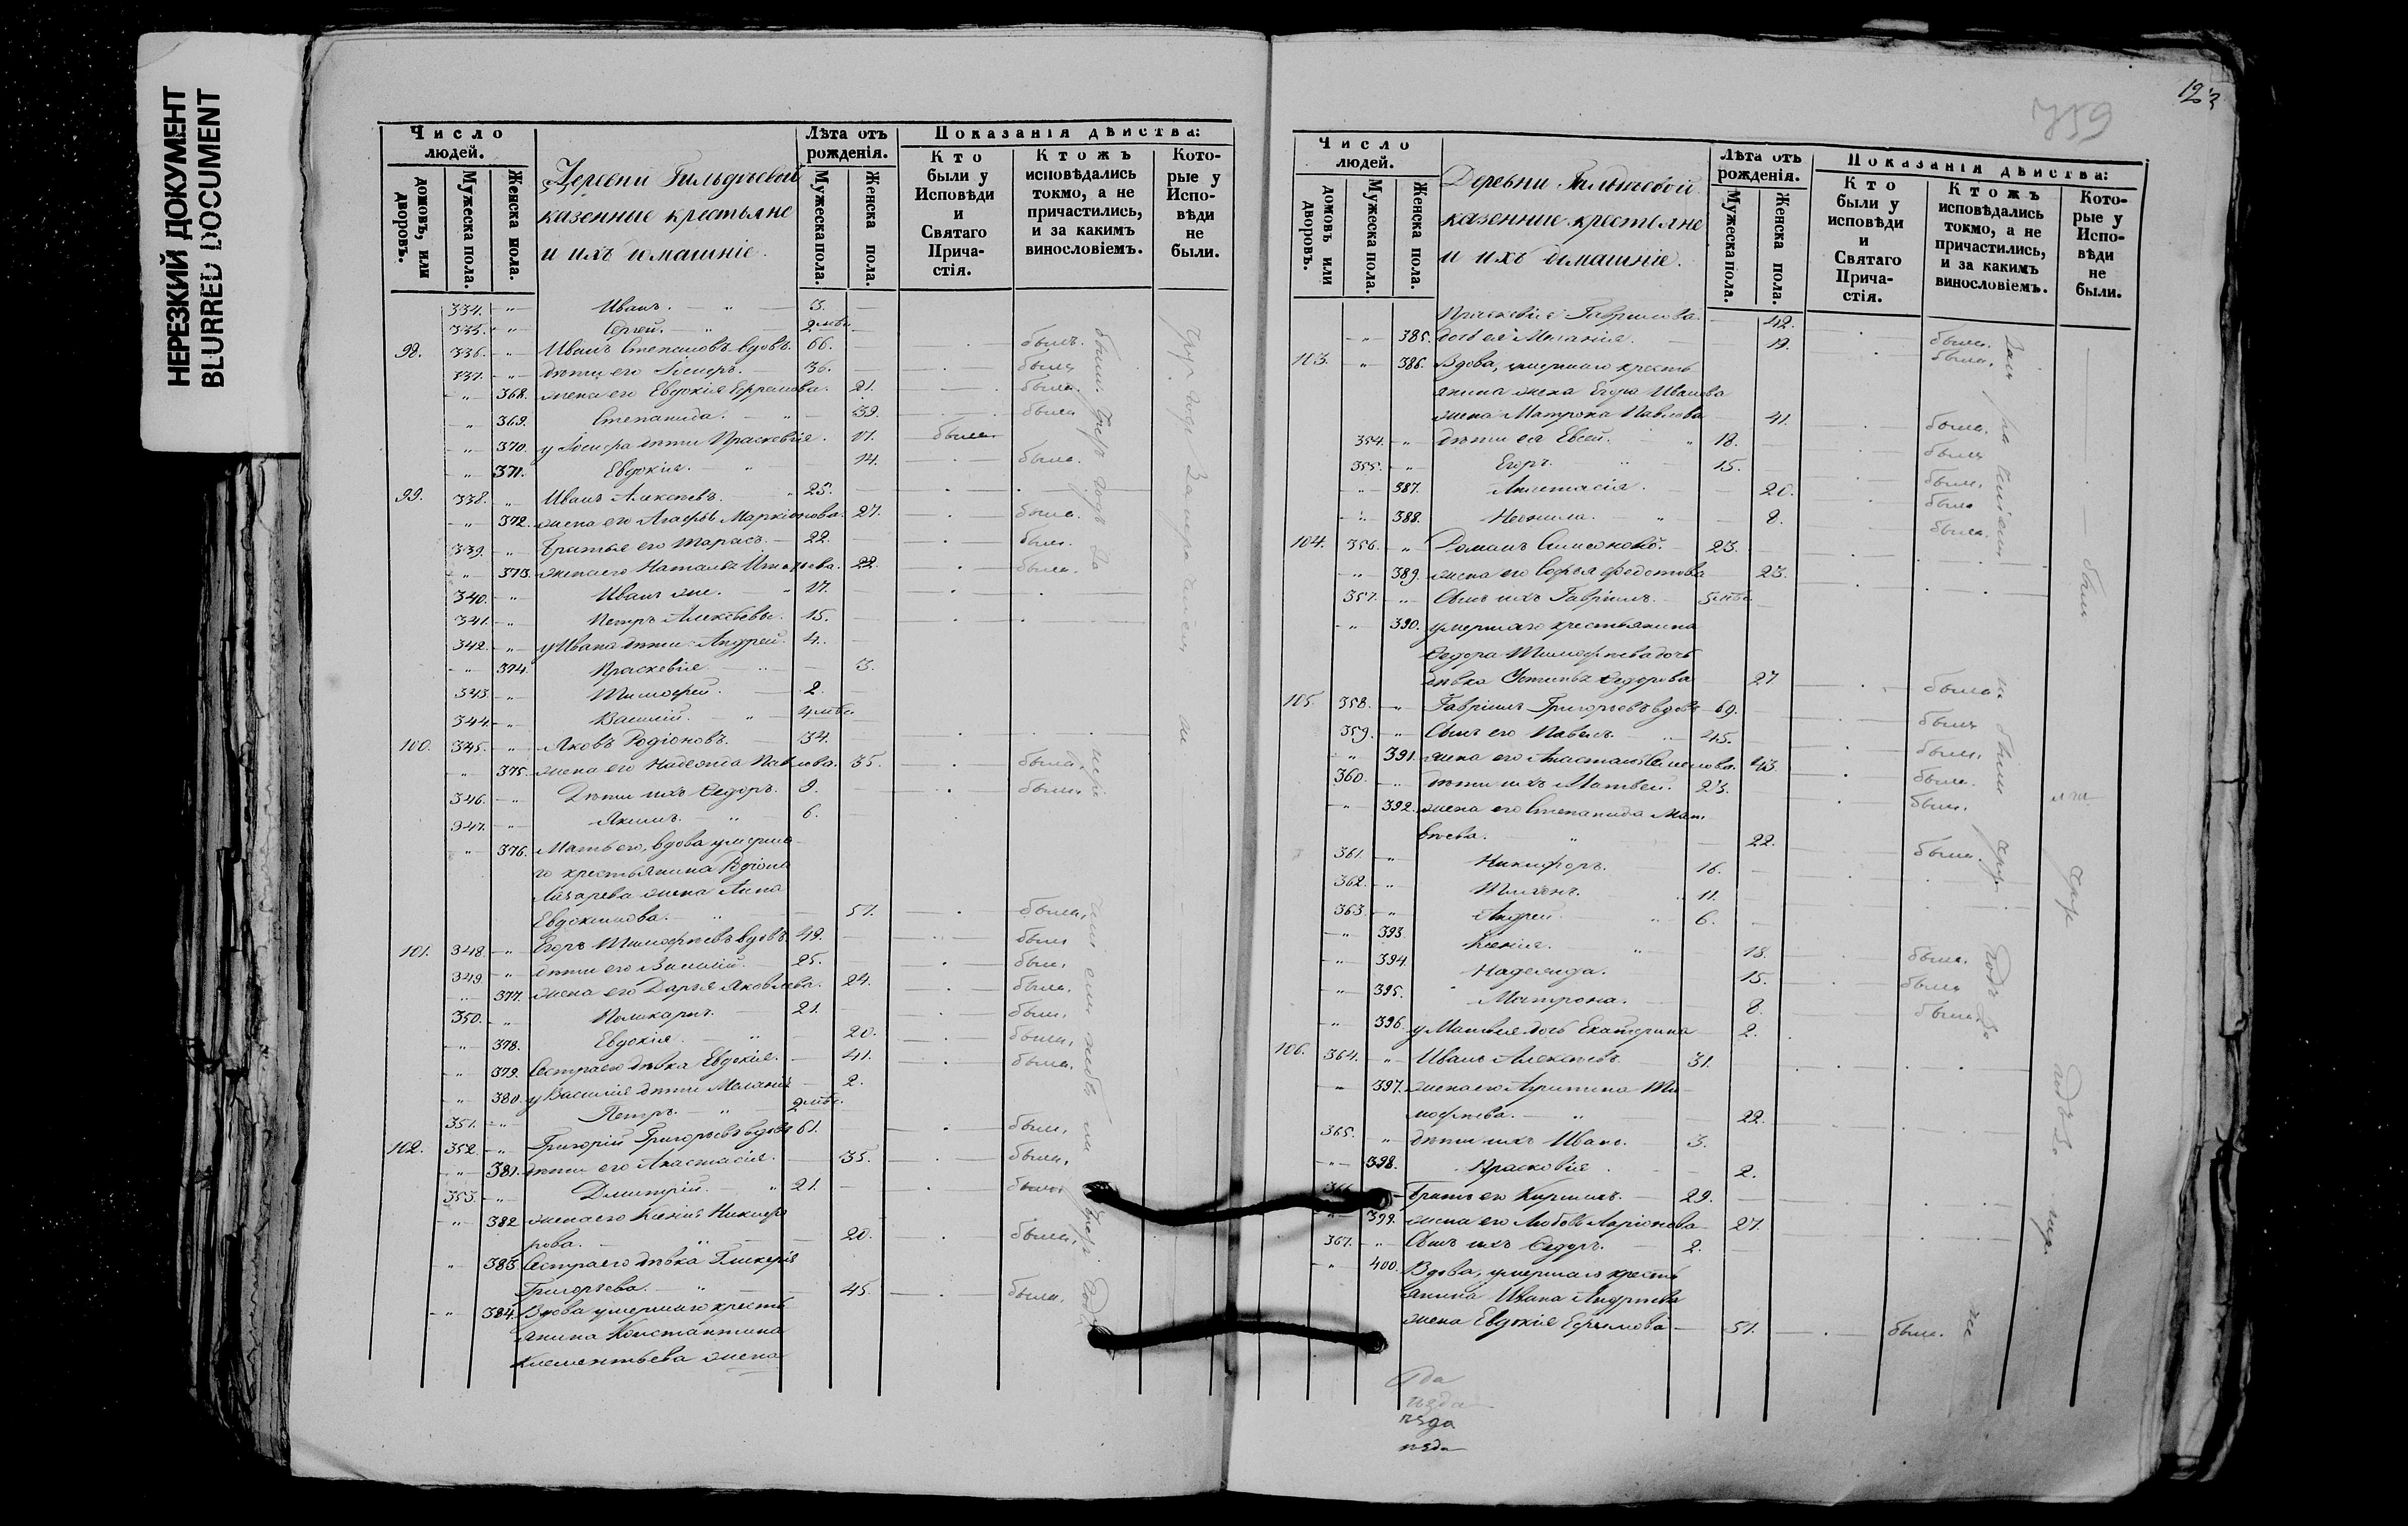 НЕРЕЗКИЙ ДОКУМЕНТ
BLURRED DOCUMENT
Число людей.
домовъ, или дворовъ.
Мужеска пола.
Женска пола.
Деревни Гильдѣевой
казенные крестьяне
и ихъ домашніе.
Лѣта отъ рожденія.
Мужеска пола.
Женска пола.
Показанія дѣйства:
Кто были у Исповѣди и Святаго Причастія.
Ктожъ исповѣдались токмо, а не причастились, и за какимъ винословіемъ.
Которые у Исповѣди не были.
334. " Иванъ. " 3.
335. " Сергей. " 2 мѣс.
98. 336. " Иванъ Степановъ вдовъ. 66. былъ.
337. " дѣти его Іосифъ. 36. былъ
" 368. жена его Евдокія Ефремова. 21. была.
" 369. Степанида. " 39. была
" 370. у Іосифа дѣти Праскевія. 17. была
" 371. Евдокія. " 14. была.
99. 338. " Иванъ Алексѣевъ. " 25.
" 372. жена его Агафья Маркіонова. 27. была.
339. " Братья его Тарасъ. 22. былъ.
" 373. жена его Наталья Игнатьева. 22. была.
340. " Иванъ же. " 17.
341. " Петръ Алексѣевы. 15.
342. " у Ивана дѣти Андрей. 4.
" 374. Праскевія. " 3.
343. " Тимофей. 2.
344. " Василій. " 4 мѣс.
100. 345. " Яковъ Родіоновъ. 34.
" 375. жена его Надежда Павлова. 35. была.
346. " Дѣти ихъ Ѳедоръ. 9. былъ
347. " Якимъ. " 6.
" 376. Мать его, вдова умерша
го крестьянина Родіона
Лазарева жена Анна
Евдокимова. " 57. была.
101. 348. " Егоръ Тимофеевъ вдовъ. 49. былъ
349. " дѣти его Василій. 25. былъ.
" 377. жена его Дарья Яковлева. 24. была.
350. " Поликарпъ. 21. былъ.
" 378. Евдокія. " 20. была.
" 379. Сестра его дѣвка Евдокія. 41. была.
" 380. у Василія дѣти Меланія 2.
351. " Петръ. " 2 мѣс.
102. 352. " Григорій Григорьевъ вдовъ 61. былъ.
" 381. дѣти его Анастасія. 35. была.
353. " Дмитрій. " 21. былъ
" 382 жена его Ксенія Никифо
рова. " 20. была.
" 383. Сестра его дѣвка Гликерія
Григорьева. " 45. была.
" 384. Вдова умершаго кресть
янина Константина
Клементьева жена
123
759
Число людей.
домовъ или дворовъ.
Мужеска пола.
Женска пола.
Деревни Гильдѣевой
казенные крестьяне
и ихъ домашніе.
Лѣта отъ рожденія.
Мужеска пола.
Женска пола.
Показанія дѣйства:
Кто были у исповѣди и Святаго Причастія.
Ктожъ исповѣдались токмо, а не причастились, и за какимъ винословіемъ.
Которые у Исповѣди не были.
Праскевія Гаврилова 42. была.
" 385. дочь ея Меланія. 19. была.
103. " 386. Вдова, умершаго кресть
янина жена Егора Иванова
жена Матрона Павлова 41. была.
354. " дѣти ея Евсей. " 18. былъ
355. " Егоръ. " 15. былъ.
" 387. Анастасія. 20. была
" 388. Неонила. " 8. была.
104. 356. " Романъ Симоновъ. 23.
" 389. жена его Софья Федотова 23.
357. " Сынъ ихъ Гавріилъ. 5 мѣс.
" 390. умершаго крестьянина
Ѳедора Тимофеева дочь
дѣвка Устинья Ѳедорова 27 была
105. 358. " Гавріилъ Григорьевъ вдовъ 69. былъ
359. " Сынъ его Павелъ. " 45. былъ.
" 391. жена его Анастасія Семенова. 43. была.
360. " дѣти ихъ Матвей. 23. былъ.
" 392. жена его Степанида Мат
вѣева. " 22. была.
361. " Никифоръ. 16.
362. " Тихонъ. " 11.
363. " Андрей. " 6.
" 393. Ксенія. " 18. была.
" 394. Надежда. 15. была
" 395. Матрона. 8. была.
" 396. у Матвея дочь Екатерина 2.
106. 364. " Иванъ Алексѣевъ. 31.
" 397. жена его Акулина Ти
мофеева. " 22.
365. " дѣти ихъ Иванъ. 3.
" 398. Прасковія. 2.
366 братъ его Кириллъ. 29.
" 399. жена его Любовь Ларіонова 27.
367. " Сынъ ихъ Ѳедоръ. 2.
" 400. Вдова, умершаго кресть
янина Ивана Андреева
жена Евдокія Ефимова 51. была.